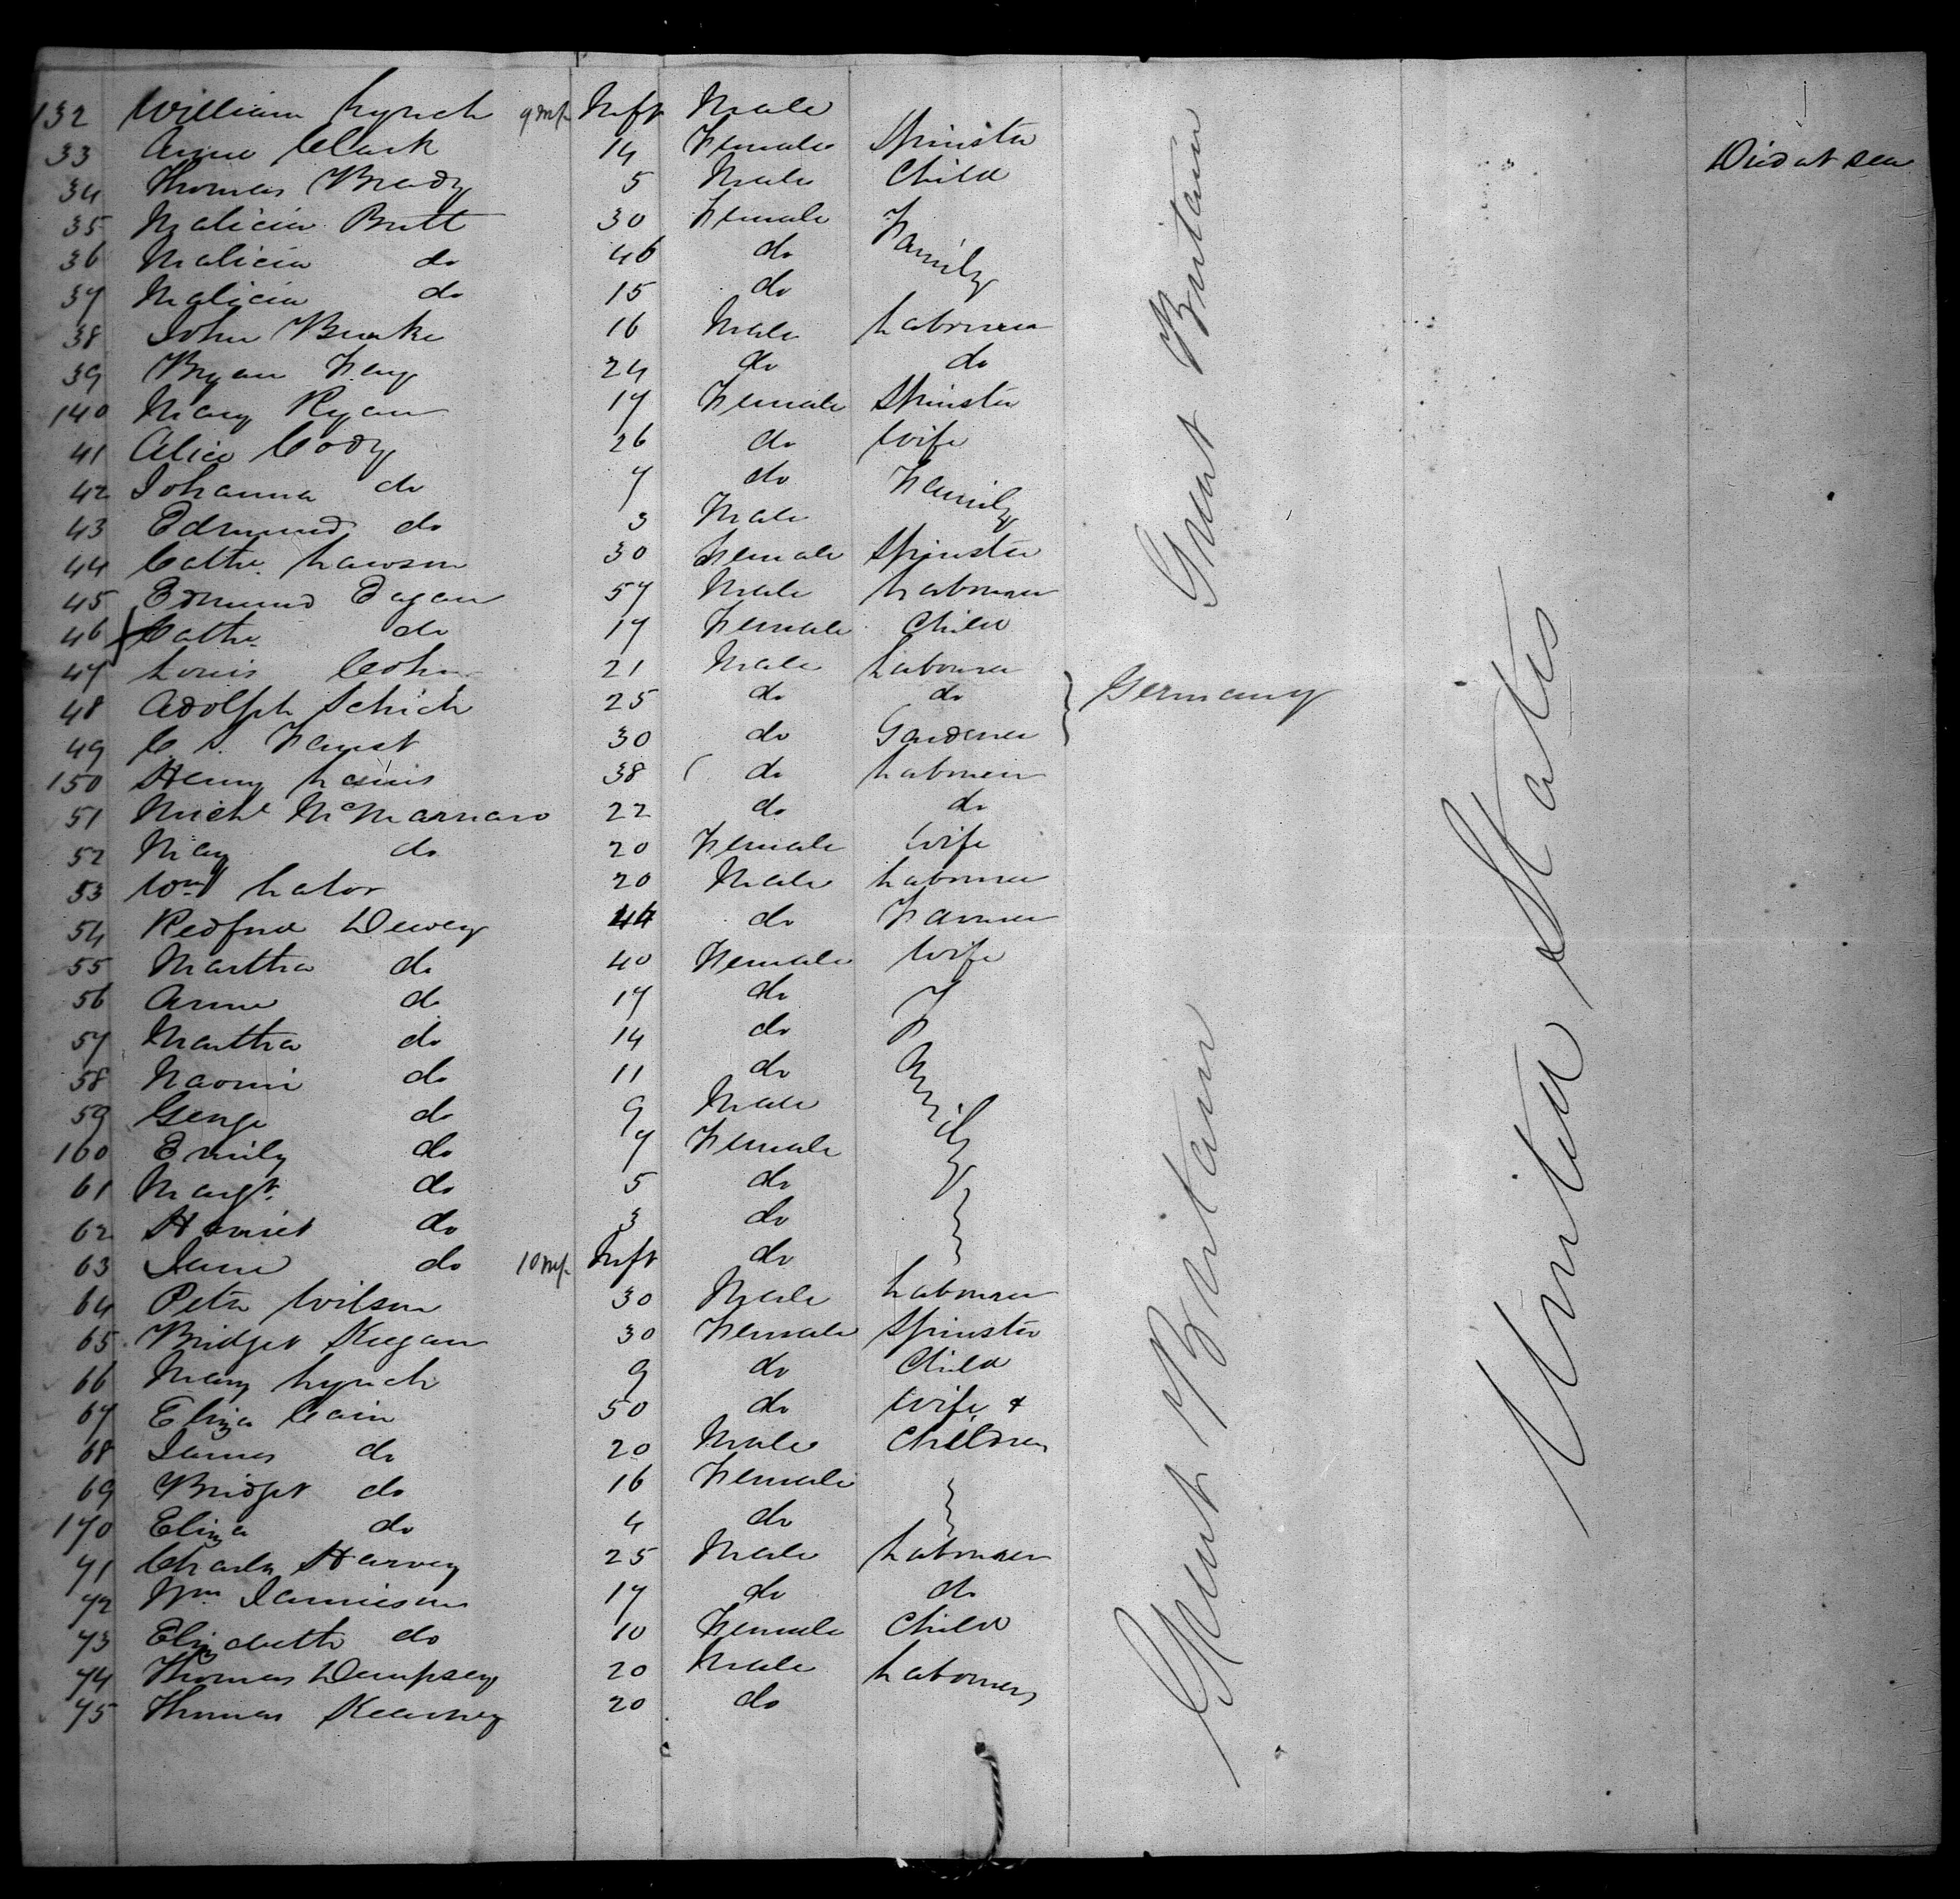 132 William Lynch 9 ms Inft Male
33 Anne Clark 14 Female Spinster Died at sea
34 Thomas Brady 5 Male Child
35 Malicia Butt 30 Female Family
36 Malicia do 46 do
37 Malicia do 15 do
38 John Burke 16 Male Labourer
39 Bryan Fay 24 do do
140 Mary Ryan 17 Female Spinster
41 Alice Cody 26 do Wife
42 Johanna do 7 do Family
43 Edmund do 3 Male
44 Cathe. Lawson 30 Female Spinster
45 Edmund Eagan 57 Male Labourer
46 Cathe. do 17 Female Child
47 Louis Cohn 21 Male Labourer
48 Adolph Schick 25 do do } Germany
49 C. S. Faust 30 do Gardener
150 Henry Lewis 38 do Labourer
51 Michl McMarnaro 22 do do
52 May do 20 Female Wife
53 Wm Lalor 20 Male Labourer
54 Redford Dewey 44 do Farmer
55 Martha do 40 Female Wife
56 Anne do 17 do Family
57 Martha do 14 do
58 Naomi do 11 do
59 George do 9 Male
160 Emily do 7 Female
61 Margt. do 5 do
62 Harriet do 3 do
63 Jane do 10 ms Inft do
64 Peter Wilson 30 Male Labourer
65 Bridget Keegan 30 Female Spinster
66 Mary Lynch 9 do Child
67 Eliza Cain 50 do Wife &
68 James do 20 Male Children
69 Bridget do 16 Female
170 Eliza do 4 do
71 Charles Harvey 25 Male Labourer
72 Wm Jamieson 17 do do
73 Elizabeth do 10 Female Child
74 Thomas Dempsey 20 Male Labourers
75 Thomas Kearney 20 do
Great Britain
Great Britain
United States